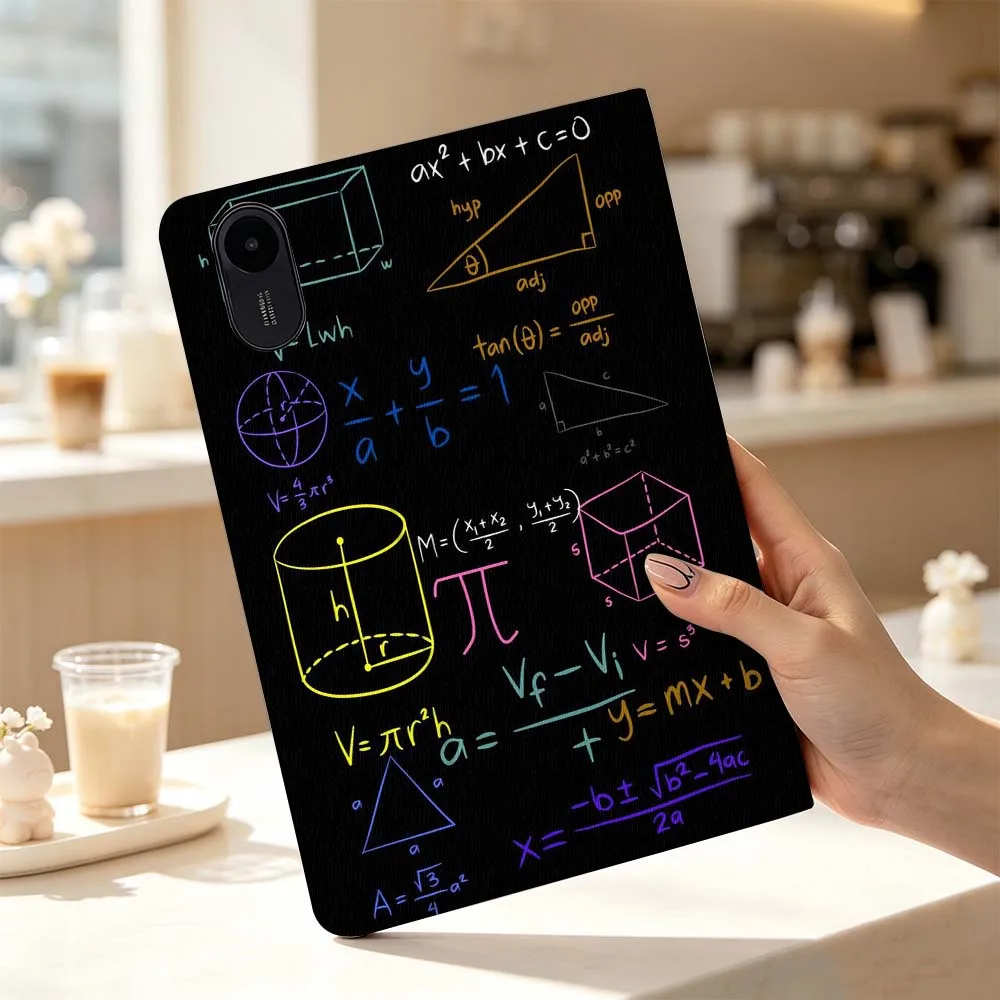 ax² + bx + c = 0
hyp
opp
θ
adj
h
w
V = Lwh
tan(θ) = opp/adj
x/a + y/b = 1
c
a
b
a² + b² = c²
r
V = 4/3 πr³
M = (x₁ + x₂/2 , y₁ + y₂/2)
h
r
π
s
s
V = s³
a = Vf − Vi / t
y = mx + b
V = πr²h
a
a
a
x = −b ± √b² − 4ac / 2a
A = √3/4 a²